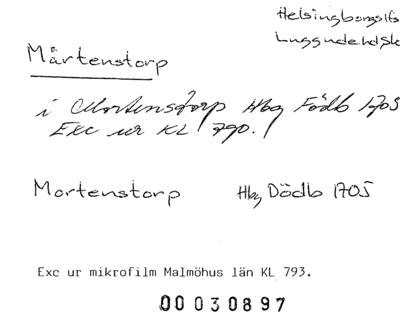 Helsingborgslfs
Luggude hdsk
Mårtenstorp
i Mortenstorp Hbg Födb 1705
Exc ur KL 790.
Mortenstorp Hbg Dödb 1705
Exc ur mikrofilm Malmöhus län KL 793.
00030897